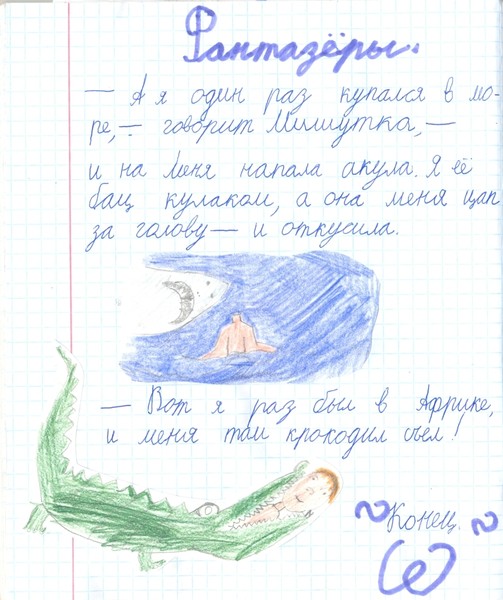 Фантазёры.
— А я один раз купался в мо-
ре, — говорит Мишутка, —
и на меня напала акула. Я её
бац кулаком, а она меня цап
за голову — и откусила.
— Вот я раз был в Африке,
и меня там крокодил съел!
~ Конец. ~